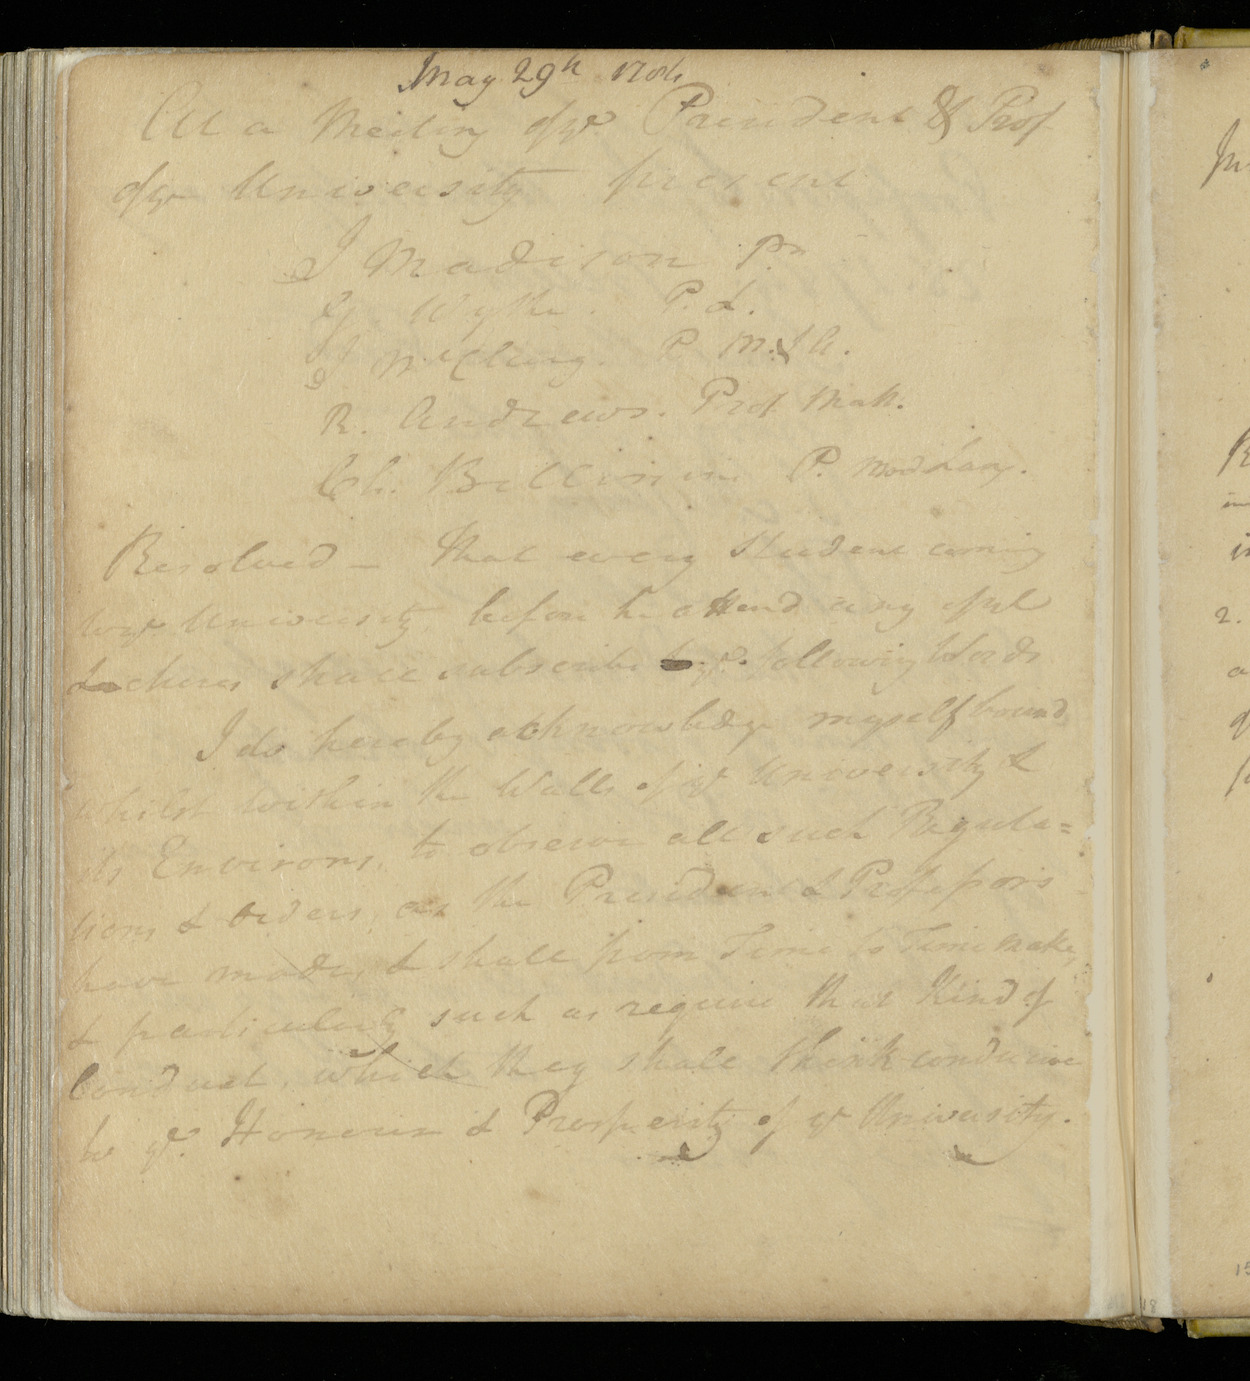 May 29th 178
At a Meeting of ye President & Prof
of ye University present
J Madison Pr
G Wythe. P. L.
J McClurg. P M. & A.
R. Andrews. Prof Math.
Ch. Bellini P. Mod Lang.
Resolved – that every Student coming
to ye University, before he attend any of ye
Lectures shall subscribe to ye. following Words
I do hereby acknowledge myself bound
whilst within the Walls of ye University &
its Environs, to observe all such Regula=
tions & orders, as the President & Professors
have made, & shall from Time to Time make,
& particularly such as require that Kind of
Conduct, which they shall think conducive
to ye. Honour & Prosperity of ye University.
2.